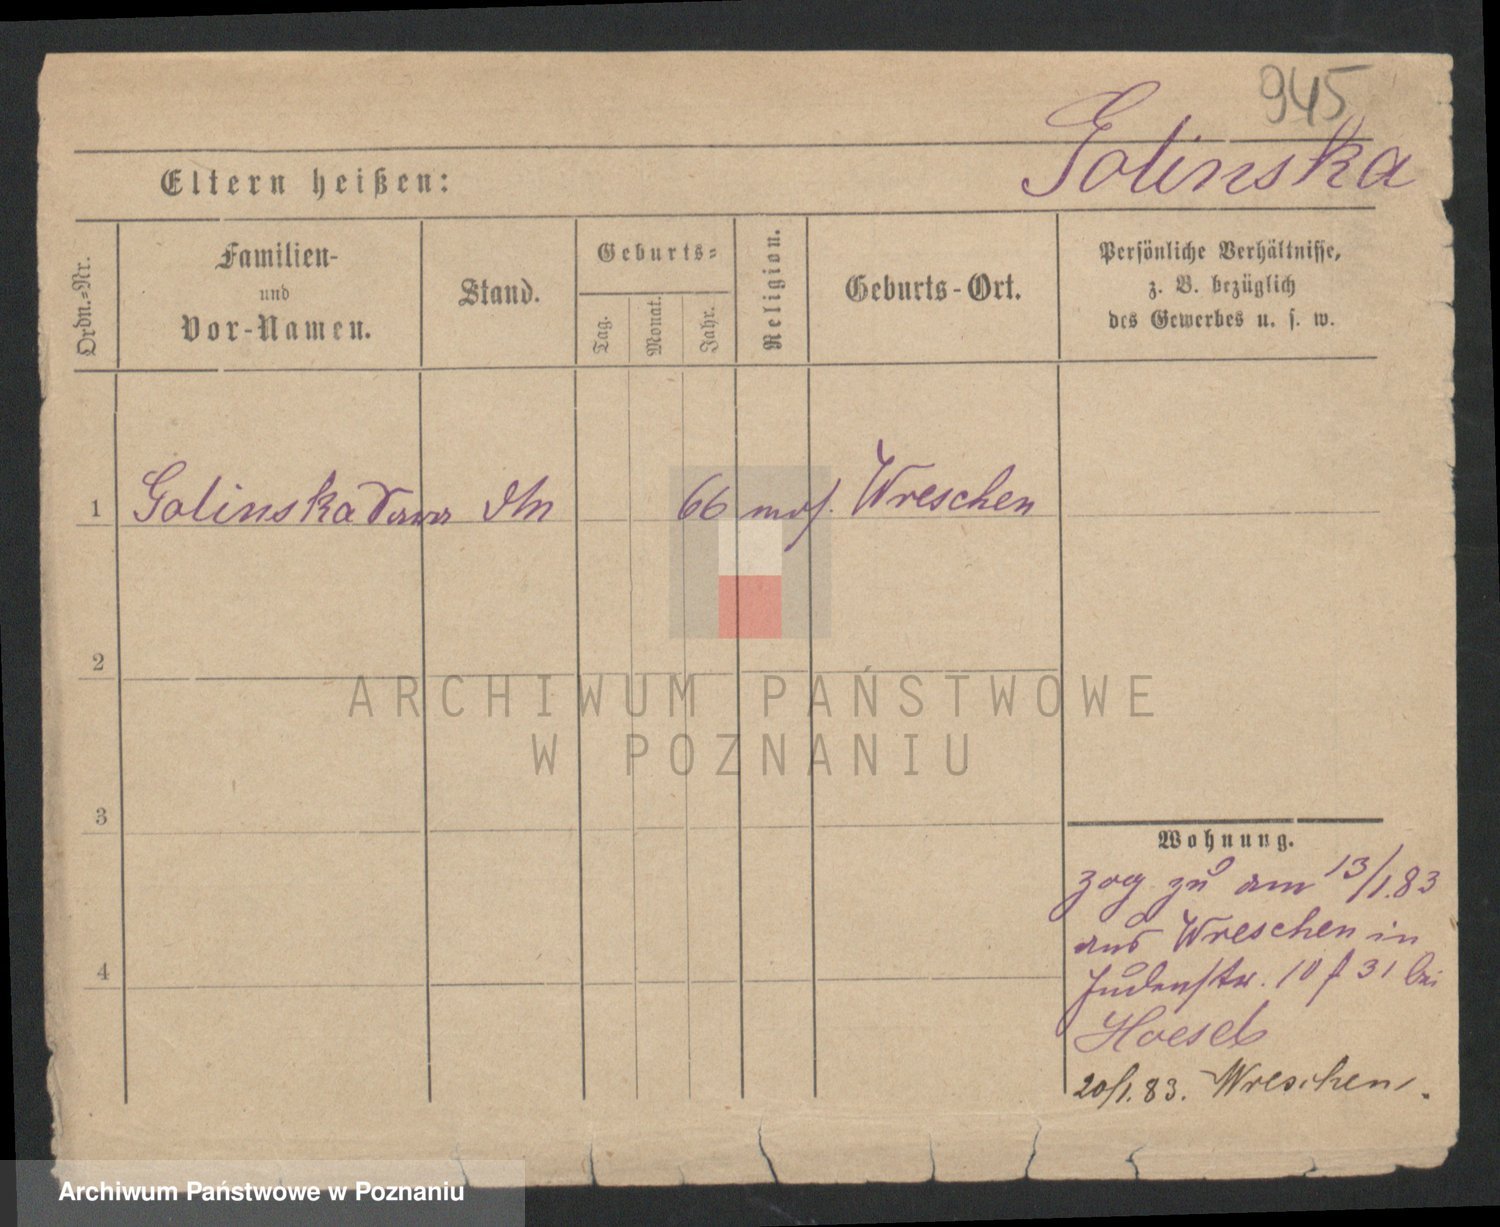 945
Golinska
Eltern heißen:
Ordn.-Nr.
Familien-
und
Vor-Namen.
Stand.
Geburts-
Tag.
Monat.
Jahr.
Religion.
Geburts-Ort.
Persönliche Verhältnisse,
z. B. bezüglich
des Gewerbes u. s. w.
1 Golinska 66 mos. Wreschen
2
ARCHIWUM PAŃSTWOWE
W POZNANIU
3
4
Wohnung.
zog zu am 13/1.83
aus Wreschen in
Judenstr. 10 f 31 bei
20/1.83. Wreschen.
Archiwum Państwowe w Poznaniu